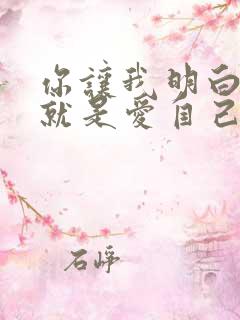 你讓我明白
就是愛自己
石崢